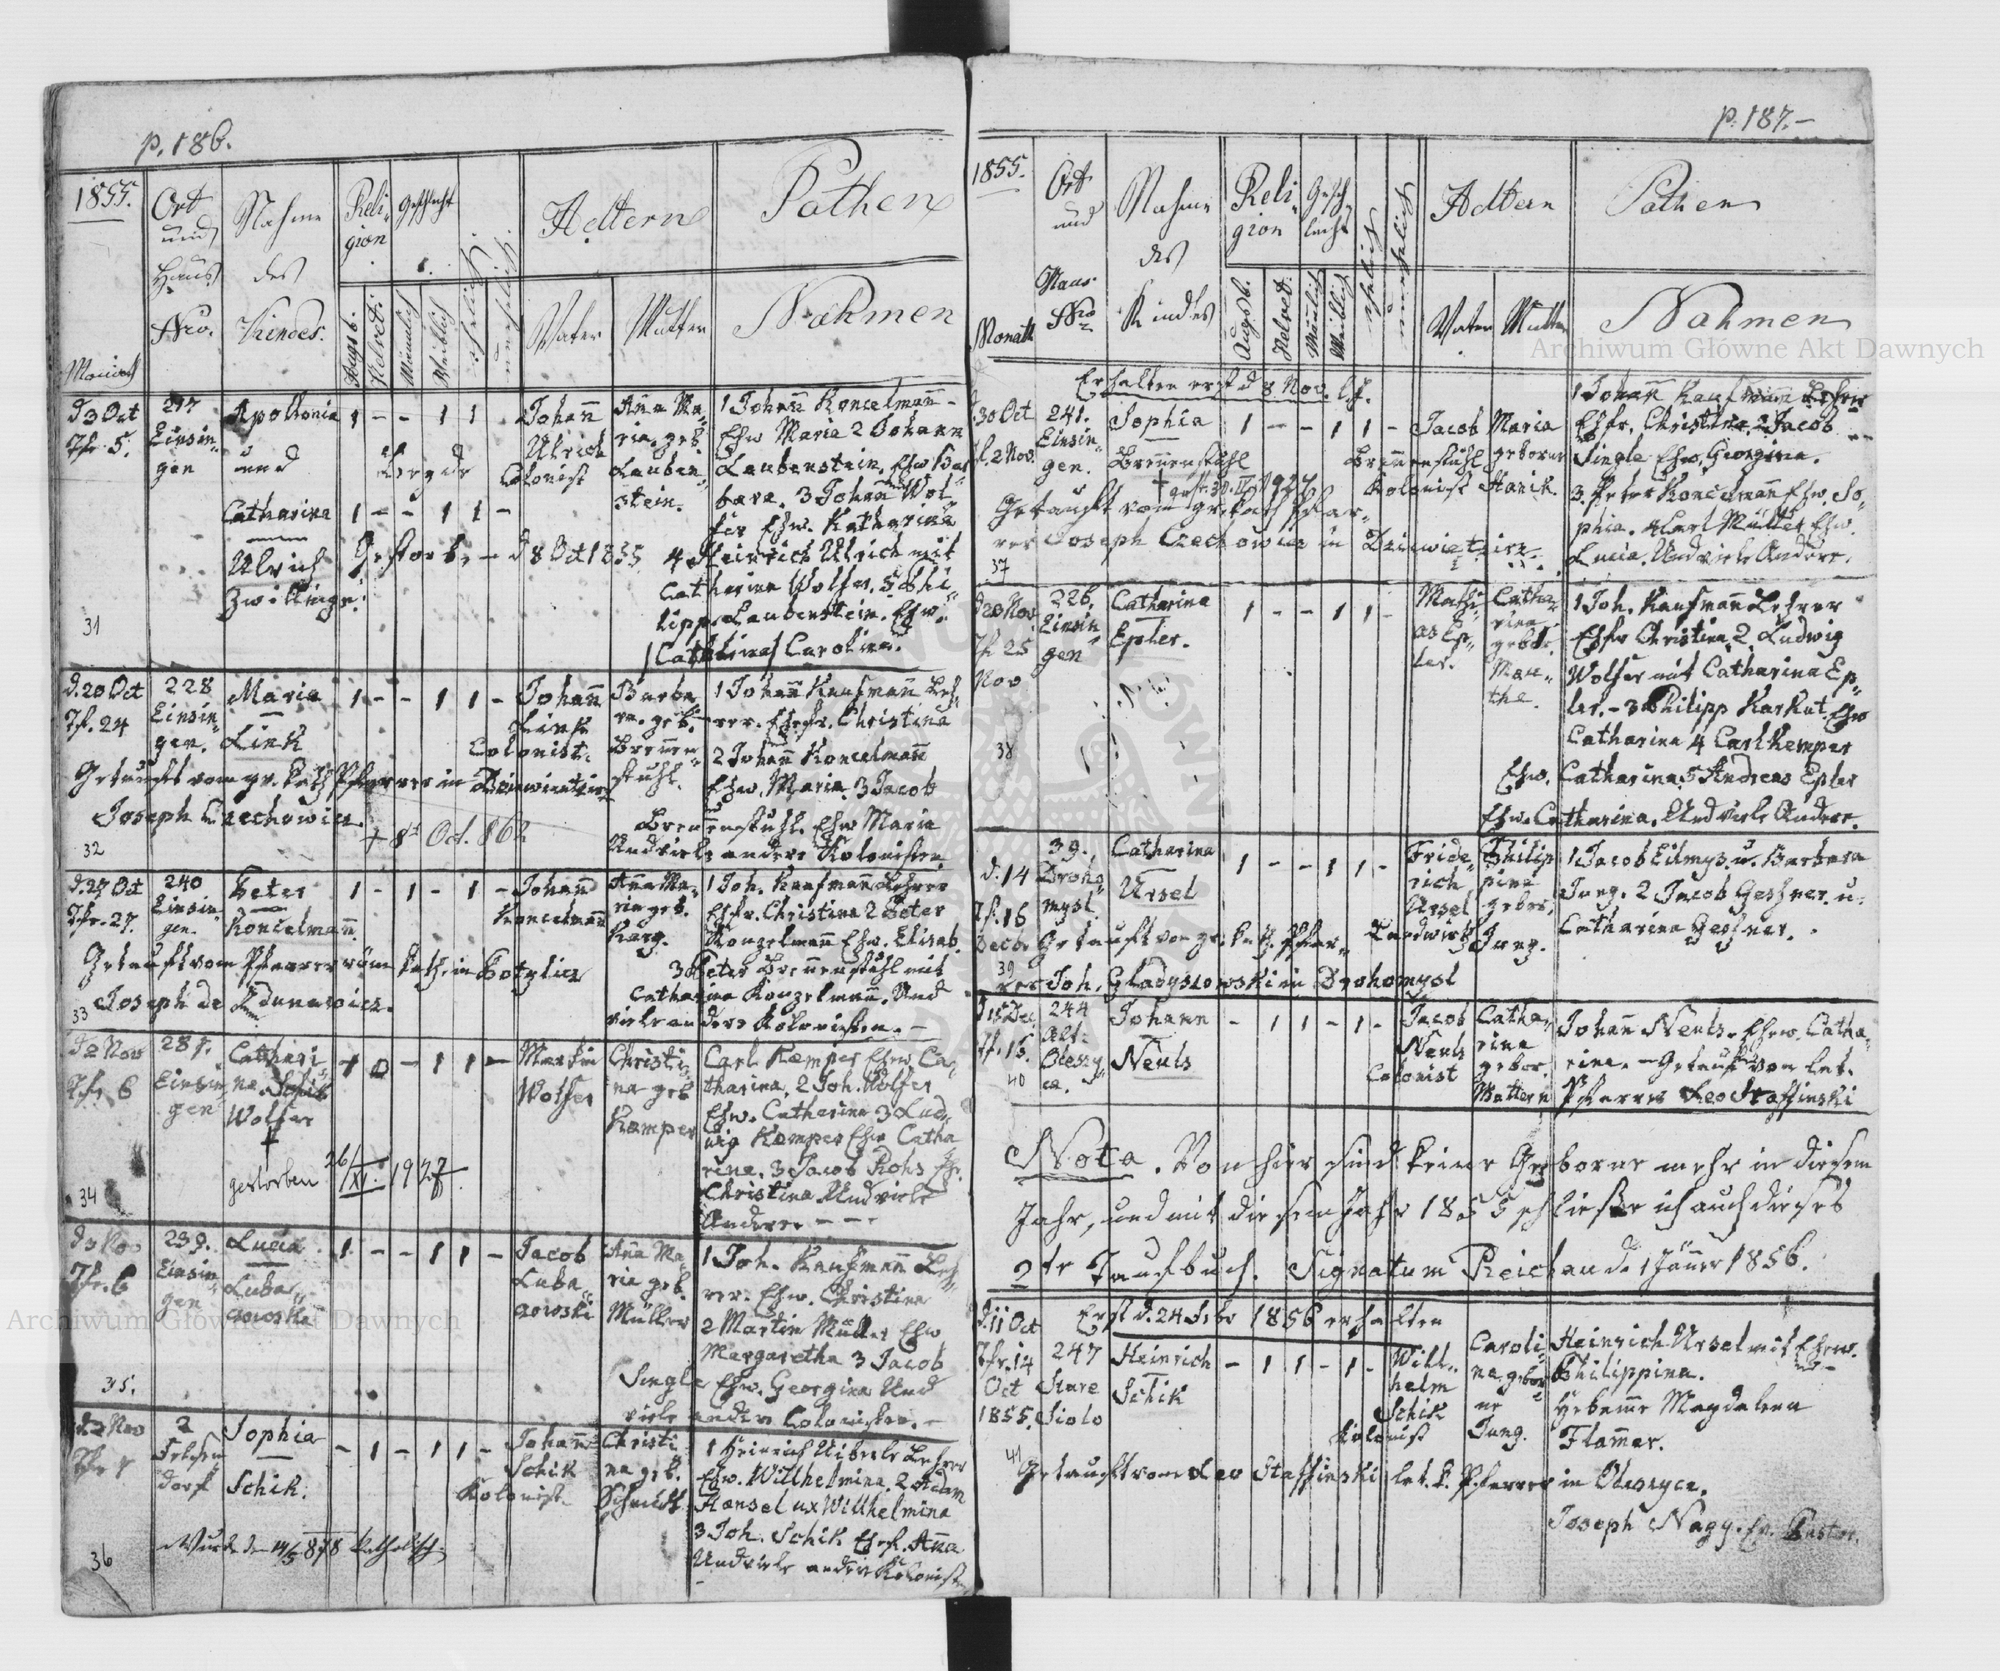 p. 186.
1855.
Ort
und
Haus
Nro.
Monath
Nahme
des
Kindes.
Reli-
gion
Geschlecht
Augsb.
Helvet.
Männlich
Weiblich
ehelich
unehelich
Aeltern
Vater
Mutter
Pathen
Nahmen
d 3 Oct
Tfr 5.
217
Einsin-
gen
Apollonia
und
Catharina
Ulrich
Zwillinge.
1 - - 1 1 -
1 - - 1 1 -
Gestorb. - d 8 Oct 1855
Johann
Ulrich
Colonist
Anna Ma-
ria geb.
Lauben-
stein.
1 Johann Koncelmann
Ehw Maria 2 Johann
Laubenstein, Ehw Bar-
bara. 3 Johann Wol-
fer Ehw. Katharina
4 Heinrich Ulrich mit
Catharina Wolfer. 5 Phi-
lipp Laubenstein. Ehw.
Catharina Carolina.
31
d. 20 Oct
Tf. 24
228
Einsin-
gen.
Maria
Link
1 - - 1 1 -
Johann
Link
Colonist.
Barba-
ra. geb.
Brennen-
stuhl.
1 Johann Kaufmann Leh-
rer. Ehefr. Christina
2 Johann Koncelmann
Ehw. Maria. 3 Jacob
Brennenstuhl. Ehw Maria
Und viele andere Kolonisten.
Getauft vom gr. kath Pfarrer in
Joseph Czechowicz.
+ 8t Oct. 862
32
d. 27 Oct
Tfr. 27.
240
Einsin-
gen.
Peter
Koncelmann.
1 - 1 - 1 -
Johann
Koncelmann
Anna Ma-
ria geb.
Karg.
1 Joh. Kaufmann Lehrer
Ehfr. Christina 2 Peter
Konzelmann Ehw. Elisab.
3 Peter Brennenstuhl mit
Catharina Konzelmann. Und
viele andere Kolonisten. -
Getauft vom Pfarrer röm kath. in
Joseph de
33
d 2 Nov
Tfr. 6
287.
Einsin-
gen
Cathari-
na
Wolfer
+
gestorben 26/XI. 1927
Martin
Wolfer
Christi-
na geb
Kemper
Carl Kemper Ehw. Ca-
tharina, 2 Joh. Wolfer
Ehw. Catharina 3 Lud-
wig Kemper Ehw Catha
rina. 3 Jacob Rohs Ehr.
Christina Und viele
Andere. - - -
34
d 3 Nov
Tfr. 6
239.
Einsin-
gen
Lucia
Luba-
gowski
1 - - 1 1 -
Jacob
Luba-
gowski
Anna Ma-
ria geb.
Müller
1 Joh. Kaufmann Leh-
rer. Ehw. Christina
2 Martin Müller Ehw
Margaretha 3 Jacob
Single Ehw. Georgina Und
viele andere Colonisten. -
35.
2
Felsen
dorf
Sophia
Schik.
- 1 - 1 1 -
Johann
Schik
Kolonist.
Christi-
na geb.
Schmidt.
1 Heinrich Lehrer
Ehw. Willhelmina. 2 Adam
Hansel ux Willhelmina
3 Joh. Schik Ehefr. Anna
Und viele andere Kolonist.
Wurde den 14/5 878 katholisch.
36
p. 187. -
1855.
Monath
Ort
und
Haus
Nro
Nahme
des
Kindes
Reli-
gion
Gesch-
lecht
Augsb.
Helvet.
Männlich
Weiblich
ehelich
unehelich
Aeltern
Vater
Mutter
Pathen
Nahmen
Erhalten erst d 8 Nov. l. J.
30 Oct
Tf. 2 Nov.
241.
Einsin-
gen.
Sophia
Brennenstuhl
1 - - 1 1 -
Jacob
Brennenstuhl
Kolonist
Maria
geborne
Hanik.
1 Johann Kaufmann Lehrer
Ehfr. Christina 2 Jacob
Single Ehw. Georgina.
3. Peter Koncelmann Ehw. So-
phia. 4 Carl Müller Ehw.
Lucia. Und viele Andere.
Getauft vom gr. kath Pfar-
rer Joseph Czechowicz in
37
d 20 Nov
Tf. 25
Nov
226.
Einsin-
gen
Catharina
Epler.
1 - - 1 1 -
Mathi-
as Ep-
ler.
Catha-
rina
gebor.
Mau-
the.
1 Joh. Kaufmann Lehrer
Ehfw Christina 2 Ludwig
Wolfer mit Catharina Ep-
ler. - 3 Philipp Karkut. Ehw
Catharina 4 Carl Kemper
Ehw. Catharina. 5 Andreas Epler
Ehw. Catharina. Und viele Andere.
38
d. 14
Tf. 16
Decbr
39.
Droho-
mysl.
Catharina
Ursel
1 - - 1 1 -
Fride-
rich
Ursel
Landwirth
Philip-
pine
gebor.
Jung.
1 Jacob Eilmes u. Barbara
Jung. 2 Jacob Geßner. u.
Catharina Geßner.
Getauft von gr. kath. Pfar-
rer Joh. Gladyszowski in Drohomysl
39
d 15 Dec.
Tf. 15.
244
Alt-
Oleszy-
ce.
Johann
Neuls
- 1 1 - 1 -
Jacob
Neuls
Colonist
Catha-
rina
gebor.
Mattern
Johann Neuls. Ehew. Catha-
rina. - Getauft von lat.
Pfarrer Leo Staffinski
40
Nota. Von hier sind keine Geborne mehr in diesem
Jahr, und mit diesem Jahr 1855 schließe ich auch dieses
2te Taufbuch. Signatum Reichau d. 1 Jänner 1856.
Erst d. 24 Febr 1856 erhalten
d. 11 Oct
Tfr. 14
Oct
1855.
247
Stare
Siolo
Heinrich
Schik
- 1 1 - 1 -
Will-
helm
Schik
Kolonist
Caroli-
na gebor-
ne
Jung.
Heinrich Ursel mit Ehew.
Philippina.
Hebamme Magdalena
Flammer.
41
Getauft vom Leo Staffinski lat. k. Pfarrer in Oleszyce.
Joseph Nagy. Ev. Pastor.
Archiwum Główne Akt Dawnych
Archiwum Główne Akt Dawnych